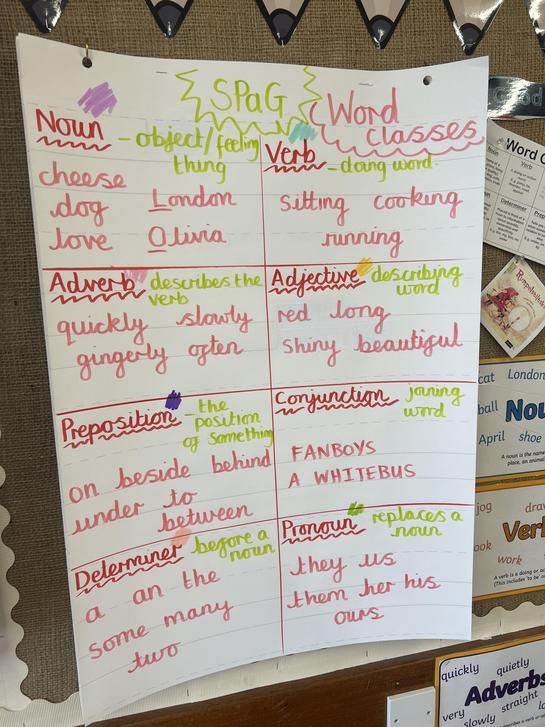 SPaG
Word
classes
Noun - object/feeling
thing
cheese
dog London
love Olivia
Verb - doing word.
Sitting cooking
running
Adverb describes the
verb
quickly slowly
gingerly often
Adjective describing
word
red long
Shiny beautiful
Preposition - the
position
of something
on beside behind
under to
between
Conjunction joining
word
FANBOYS
A WHITEBUS
Determiner before a
noun
a an the
some many
two
Pronoun replaces a
noun
they us
them her his
ours
Good
Word C
Noun
Verb
Determiner
cat London
ball Nou
April shoe
A noun is the name
place, an animal
jog draw
Verb
ook
work
A verb is a doing or ac
(This includes 'to be' a
quickly quietly
Adverbs
very
slowly straight